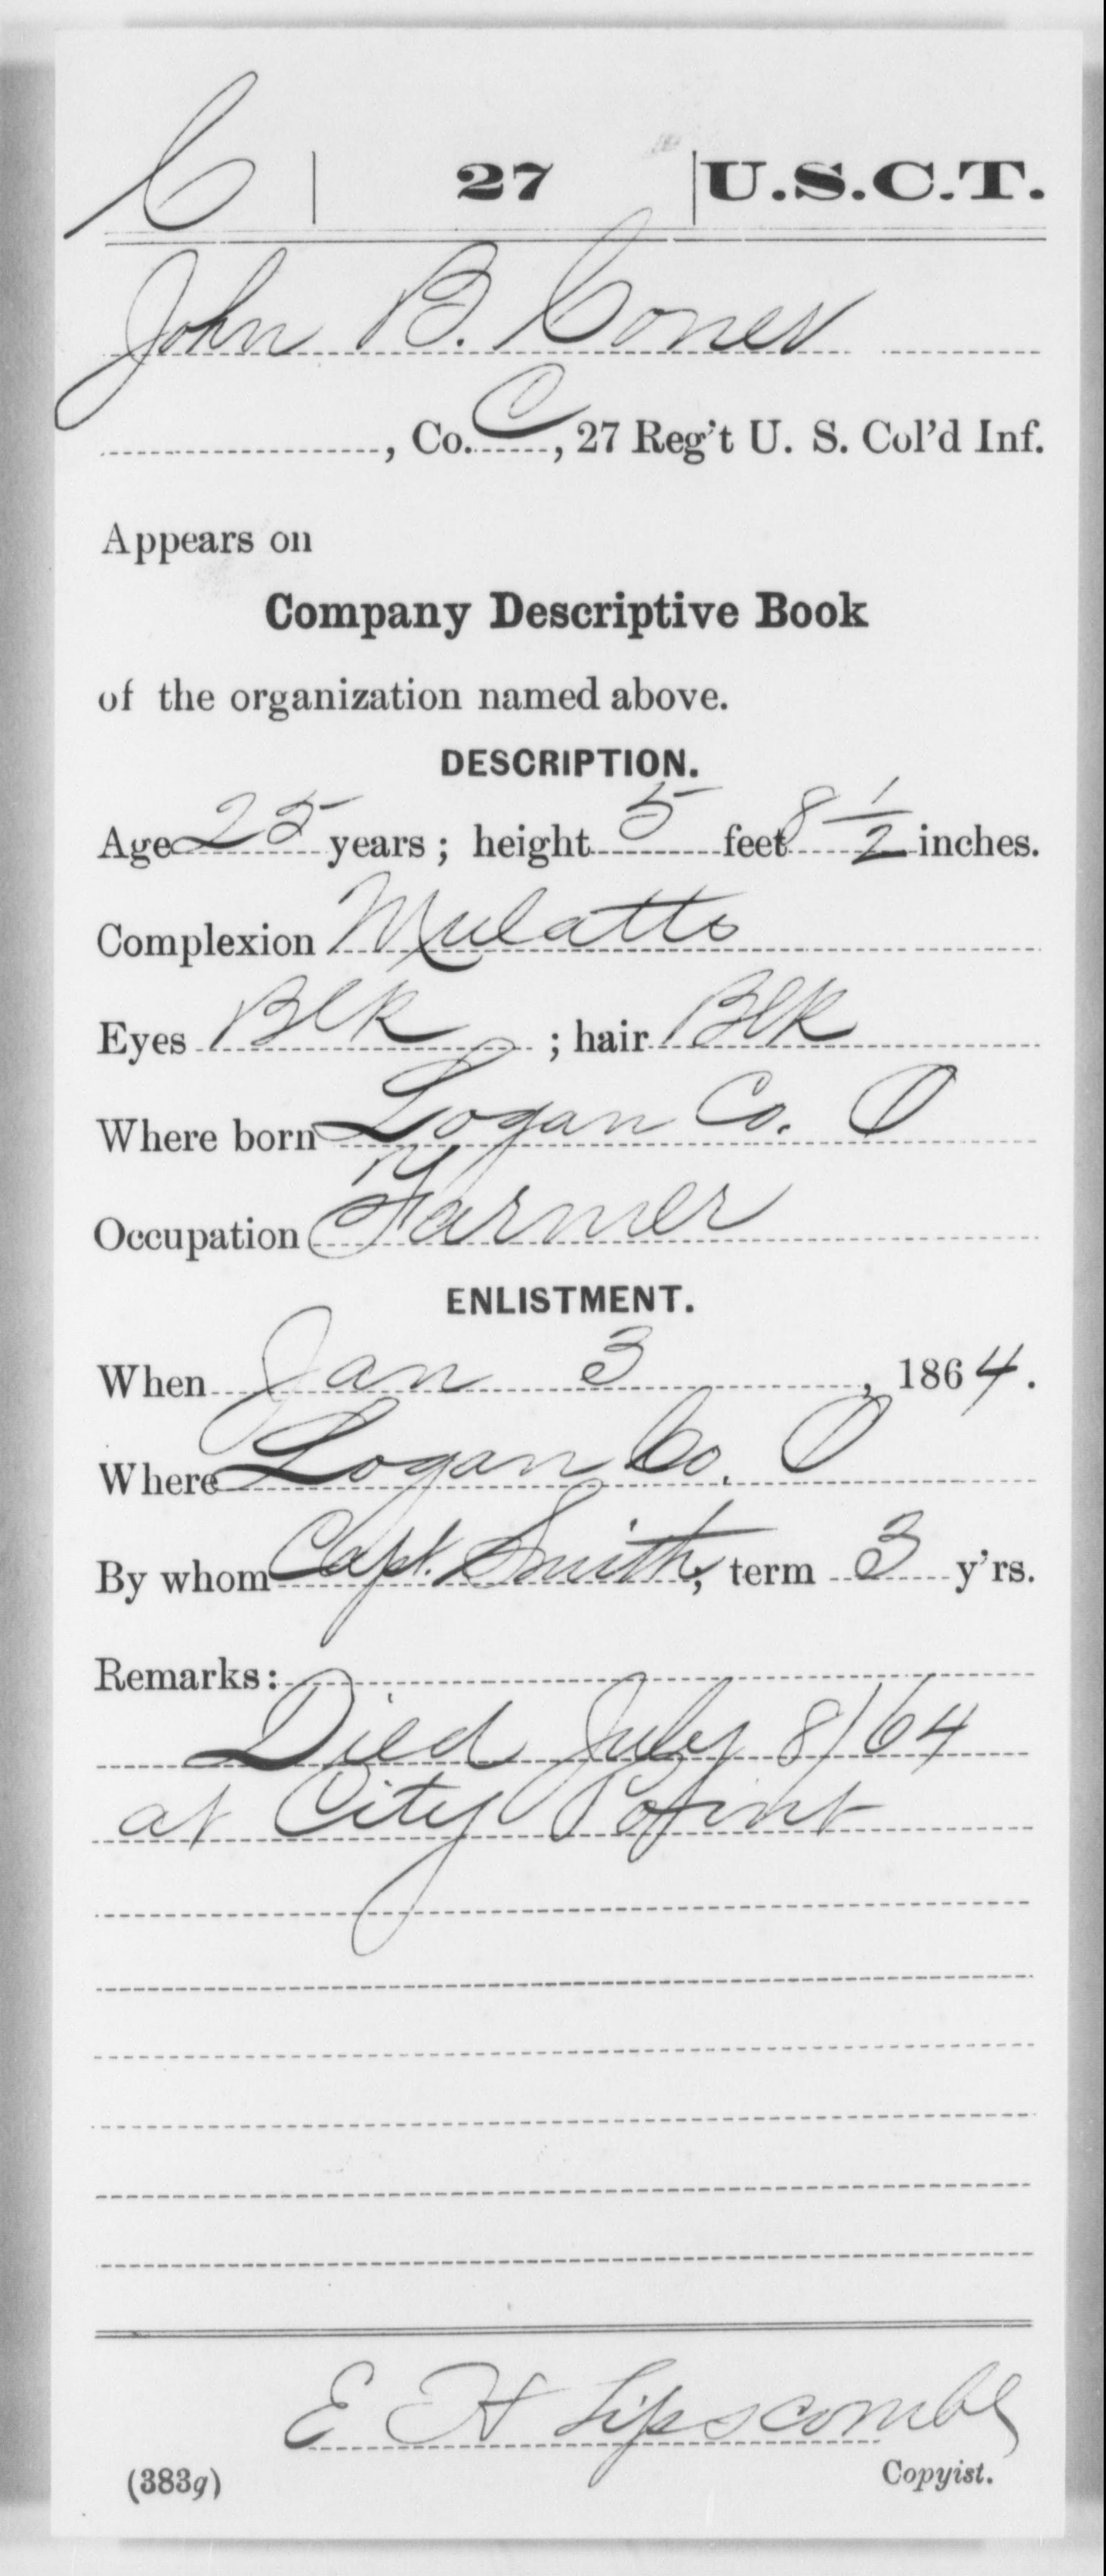 C | 27 | U.S.C.T.
John B. Coner
, Co. C, 27 Reg't U. S. Col'd Inf.
Appears on
Company Descriptive Book
of the organization named above.
DESCRIPTION.
Age 25 years; height 5 feet 8 1/2 inches.
Complexion Mulatto
Eyes Blk; hair Blk
Where born Logan Co. O
Occupation Farmer
ENLISTMENT.
When Jan 3, 1864.
Where Logan Co. O
By whom Capt. Smith; term 3 y'rs.
Remarks:
Died July 8/64
at City Point
E H Lipscombe
(383g) Copyist.